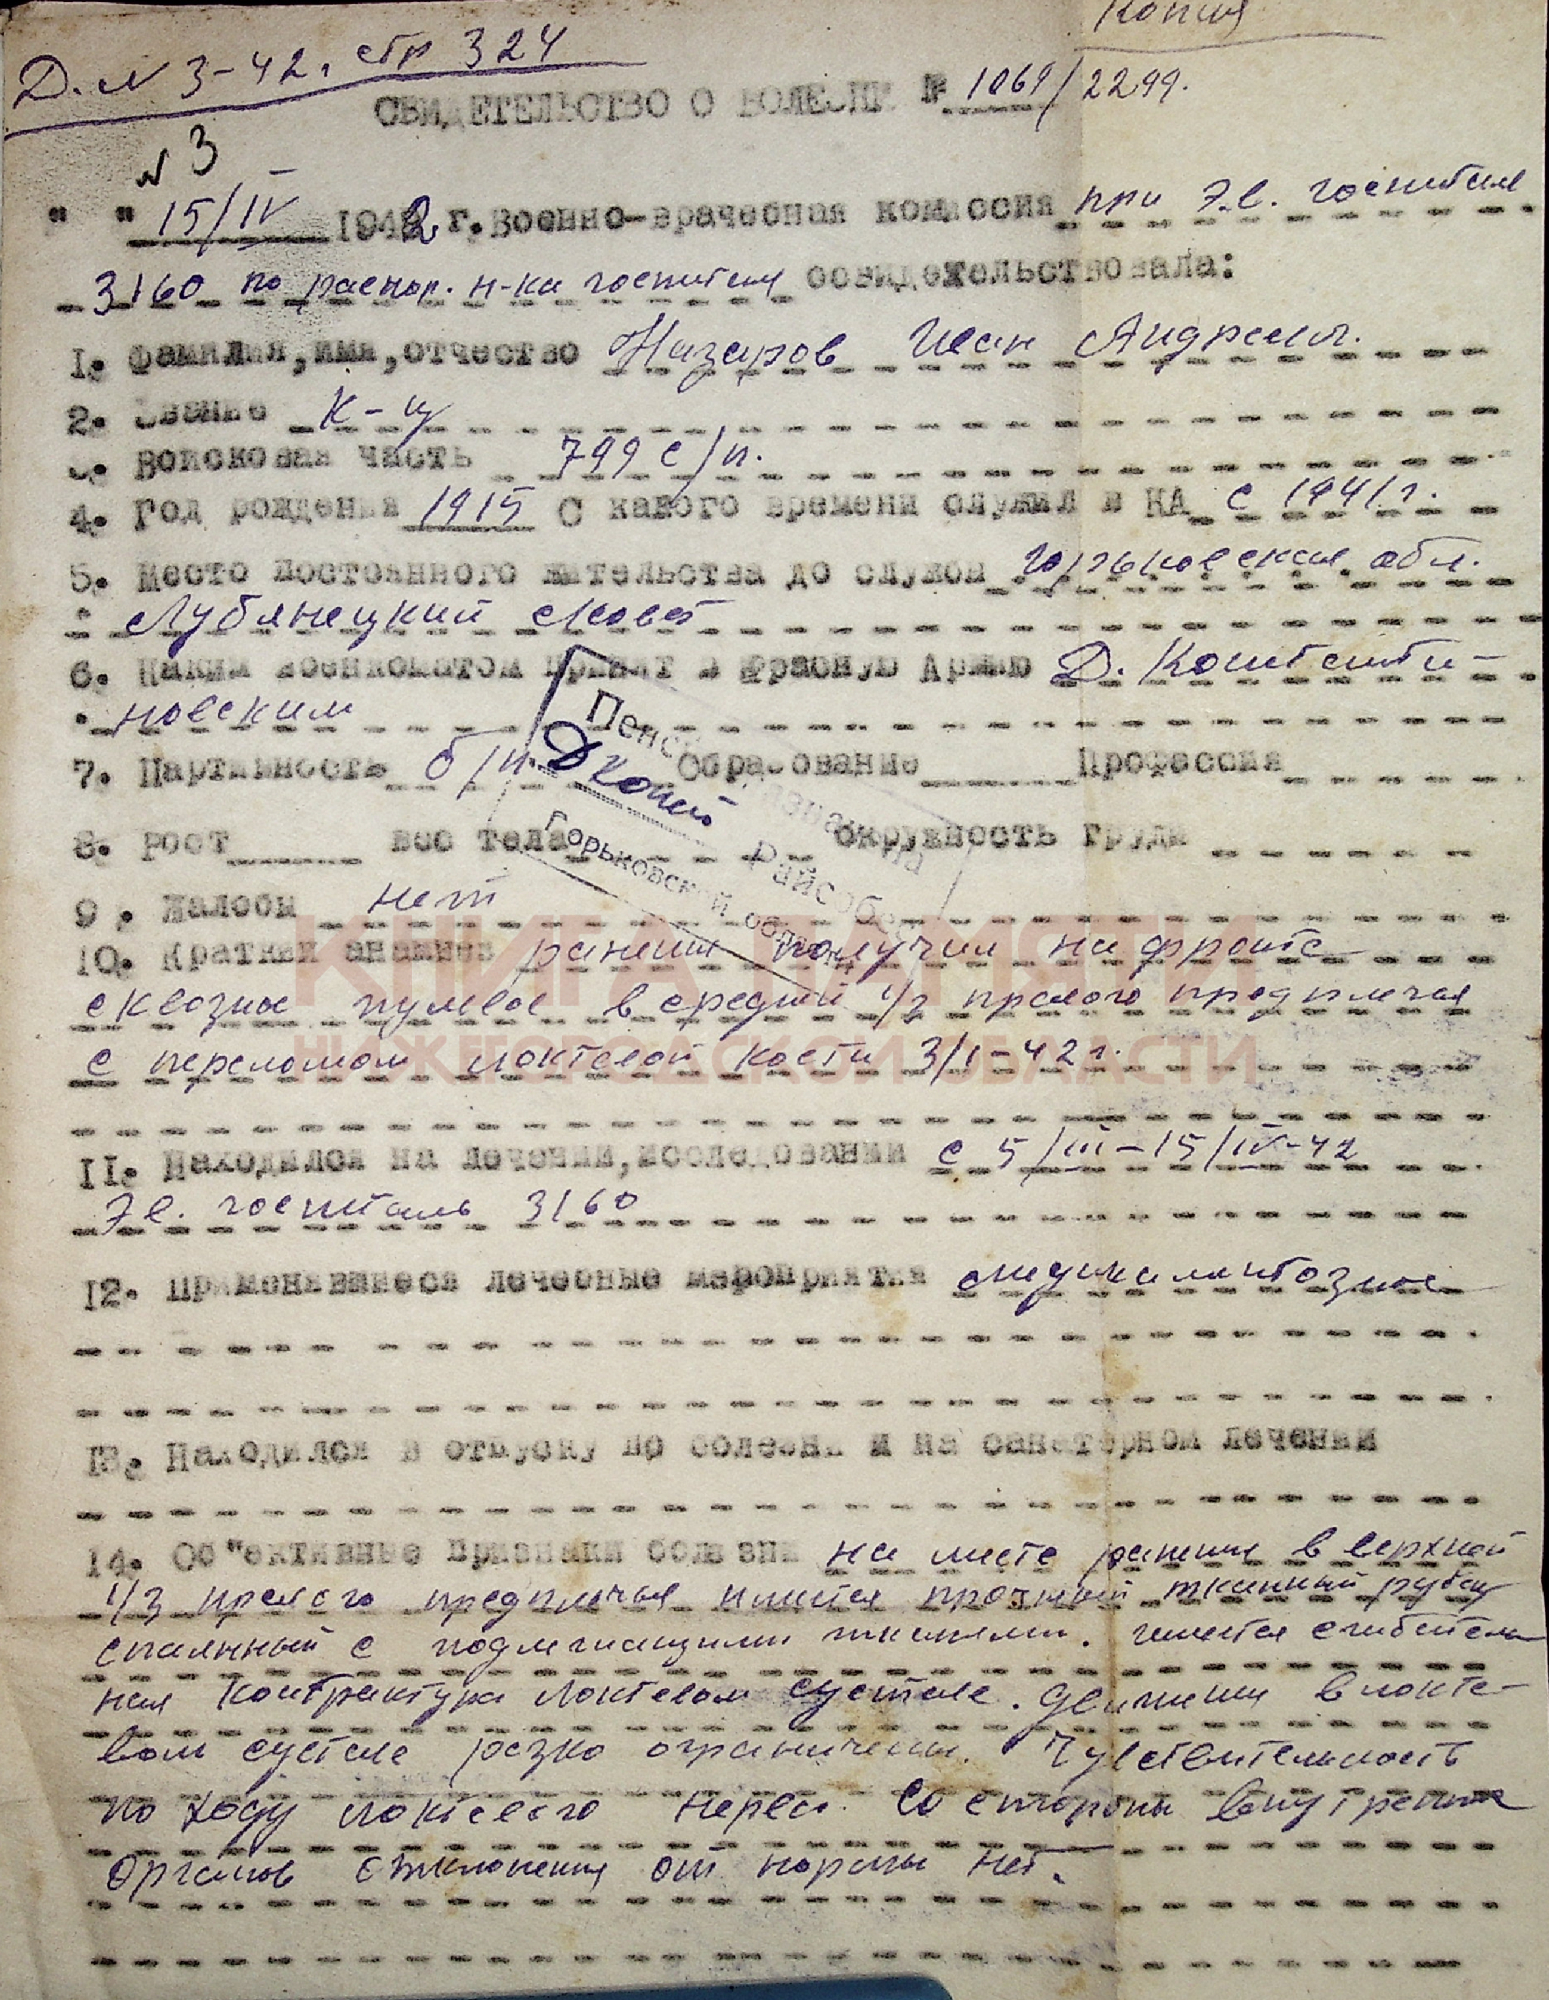 Копия
Д. № 3-42, стр 324
СВИДЕТЕЛЬСТВО О БОЛЕЗНИ № 1069/2299.
№ 3
" " 15/IV 1942 г. Военно-врачебная комиссия при Эв. госпитале
3160 по распор. н-ка госпиталя освидетельствовала:
1. Фамилия, имя, отчество Назаров Иван Андреев.
2. Звание К-ц
3. Войсковая часть 799 с/п.
4. Год рождения 1915 С какого времени служил в КА с 1941 г.
5. Место постоянного жительства до службы Горьковская обл.
Лубянецкий с/совет
6. Каким военкоматом призван в Красную Армию Д. Константи-
новским
7. Партийность б/п. Образование Профессия
Пенс
Д Конст
Райсобес
Горьковской области
8. Рост вес тела окружность груди
9. Жалобы нет
10. Краткий анамнез ранение получил на фронте
сквозное пулевое в средней 1/3 правого предплечья
с переломом локтевой кости 3/I-42 г.
КНИГА ПАМЯТИ
НИЖЕГОРОДСКОЙ ОБЛАСТИ
11. Находился на лечении, исследовании с 5/III-15/IV-42
Эв. госпиталь 3160
12. Применявшиеся лечебные мероприятия
13. Находился в отпуску по болезни и на санаторном лечении
14. Об"ективные признаки болезни на месте ранения в верхней
1/3 правого предплечья имеется прочный тканный рубец
спаянный с подлежащими тканями. имеется сгибатель
ная контрактура локтевом суставе. движения в локте-
вом суставе резко ограничены. Чувствительность
по ходу локтевого нерва. Со стороны внутренних
органов отклонения от нормы нет.